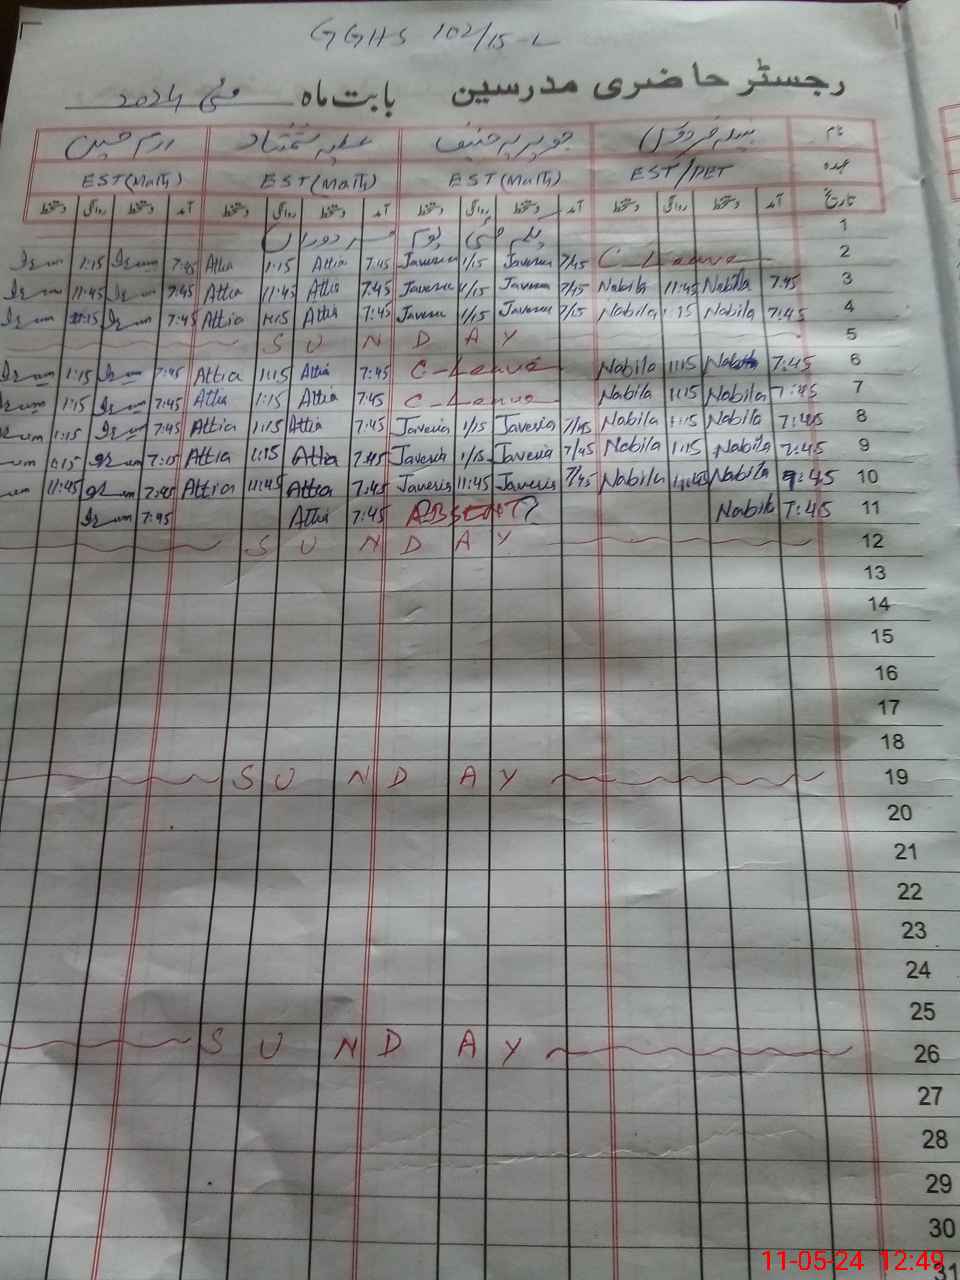 GGHS 102/15-L
رجسٹر حاضری مدرسین بابت ماہ مئی 2024
نام نبیلہ فردوس جویریہ حنیف عطیہ شمشاد ارم حسین
عہدہ EST/PET EST(Math) EST(Math) EST(Math)
تاریخ آمد دستخط روانگی دستخط آمد دستخط روانگی دستخط آمد دستخط روانگی دستخط آمد دستخط روانگی دستخط
1 یکم مئی یوم مزدوراں
Irum 1:15 Irum 7:45 Attia 1:15 Attia 7:45 Javeria 1/15 Javeria 7/45 C-Leave 2
Irum 11:45 Irum 7:45 Attia 11:45 Attia 7:45 Javeria 1/15 Javeria 7/45 Nabila 11:45 Nabila 7:45 3
Irum 1:15 Irum 7:45 Attia 1:15 Attia 7:45 Javeria 1/15 Javeria 7/15 Nabila 1:15 Nabila 7:45 4
SUNDAY 5
Irum 1:15 Irum 7:45 Attia 1:15 Attia 7:45 C-Leave Nabila 1:15 Nabila 7:45 6
Irum 1:15 Irum 7:45 Attia 1:15 Attia 7:45 C-Leave Nabila 1:15 Nabila 7:45 7
Irum 1:15 Irum 7:45 Attia 1:15 Attia 7:45 Javeria 1/15 Javeria 7/45 Nabila 1:15 Nabila 7:45 8
um 1:15 Irum 7:15 Attia 1:15 Attia 7:45 Javeria 1/15 Javeria 7/45 Nabila 1:15 Nabila 7:45 9
um 11:45 Irum 7:45 Attia 11:45 Attia 7:45 Javeria 11:45 Javeria 7/45 Nabila 11:45 Nabila 7:45 10
Irum 7:45 Attia 7:45 ABSENT? Nabila 7:45 11
SUNDAY 12
13
14
15
16
17
18
SUNDAY 19
20
21
22
23
24
25
SUNDAY 26
27
28
29
30
31
11-05-24 12:49